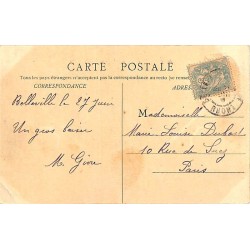 CARTE POSTALE
Tous les pays étrangers n'acceptent pas la correspondance au verso
CORRESPONDANCE
Belleville le 27 Juin
Un gros baiser
M. Givre
Mademoiselle
Marie Louise Dubost
10 Rue de Suez
Paris
RHONE